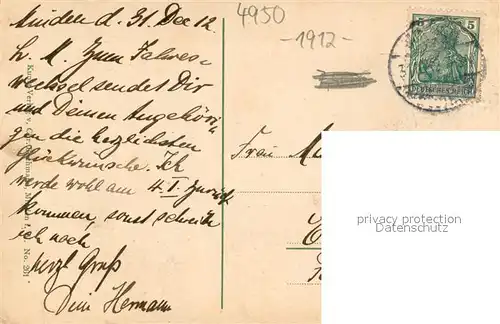 Minden d. 31 Dec 12.
L. M. Zum Jahres-
wechsel sendet Dir
und Deinen Angehöri-
gen die herzlichsten
Glückwünsche. Ich
werde wohl am 4.I. zurück
kommen, sonst schreib
ich noch
herzl Gruß
Dein Hermann
4950
-1912-
5
5
DEUTSCHES REICH
Frau
privacy protection
watermark
No. 201